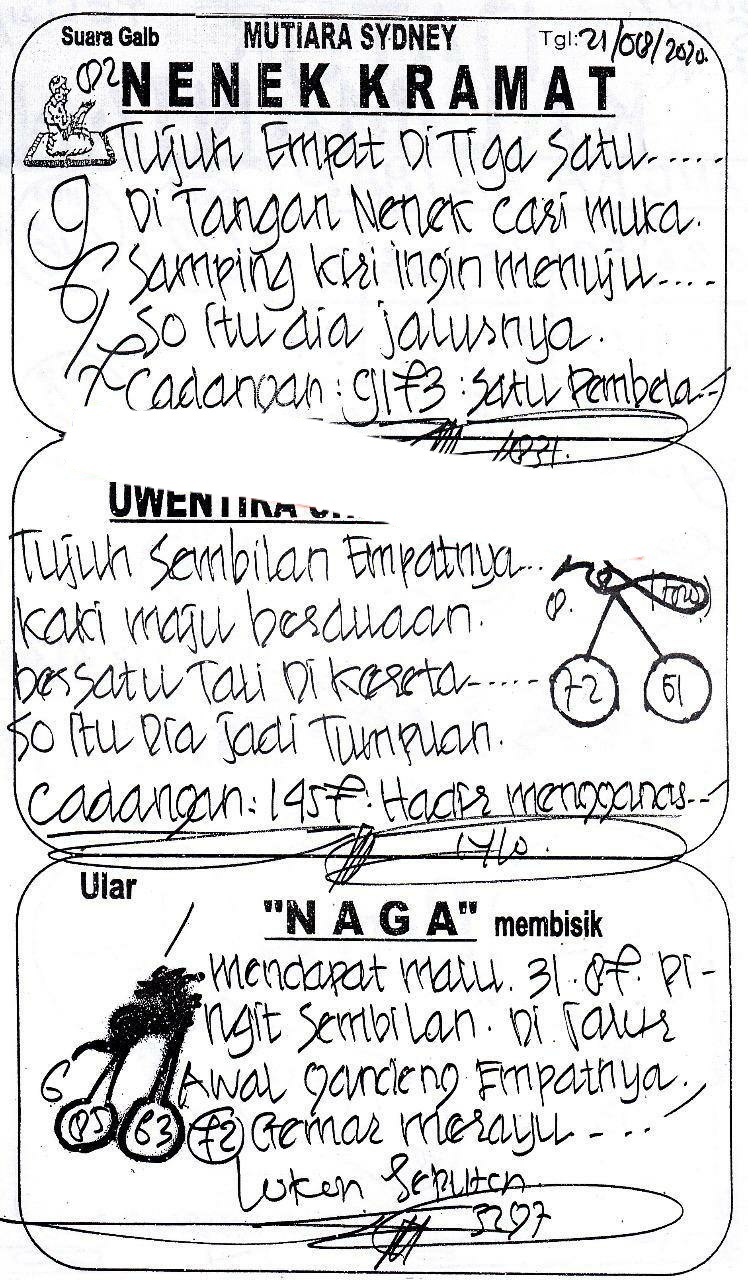 Suara Galb MUTIARA SYDNEY Tgl: 21/08/2020.
NENEK KRAMAT
Tujuh Empat Di Tiga Satu.....
Di Tangan Nenek cari muka.
Samping kiri ingin menuju.....
So itu dia jalurnya.
Cadangan: 9173: Satu Pembela--
1831.
9
6
7
UWENTIRA
Tujuh Sembilan Empatnya...
kaki maju berduaan.
bersatu Tali Di kereta------
So itu Dia jadi Tumpuan.
72 61
Cadangan: 1457: Hadir mengganas--
Ular
"NAGA" membisik
Mendapat malu. 31. 87. Pi-
ngit Sembilan. Di Jalur
Awal gandeng Empatnya.
6
85 63 72 Gemar merayu----
3297